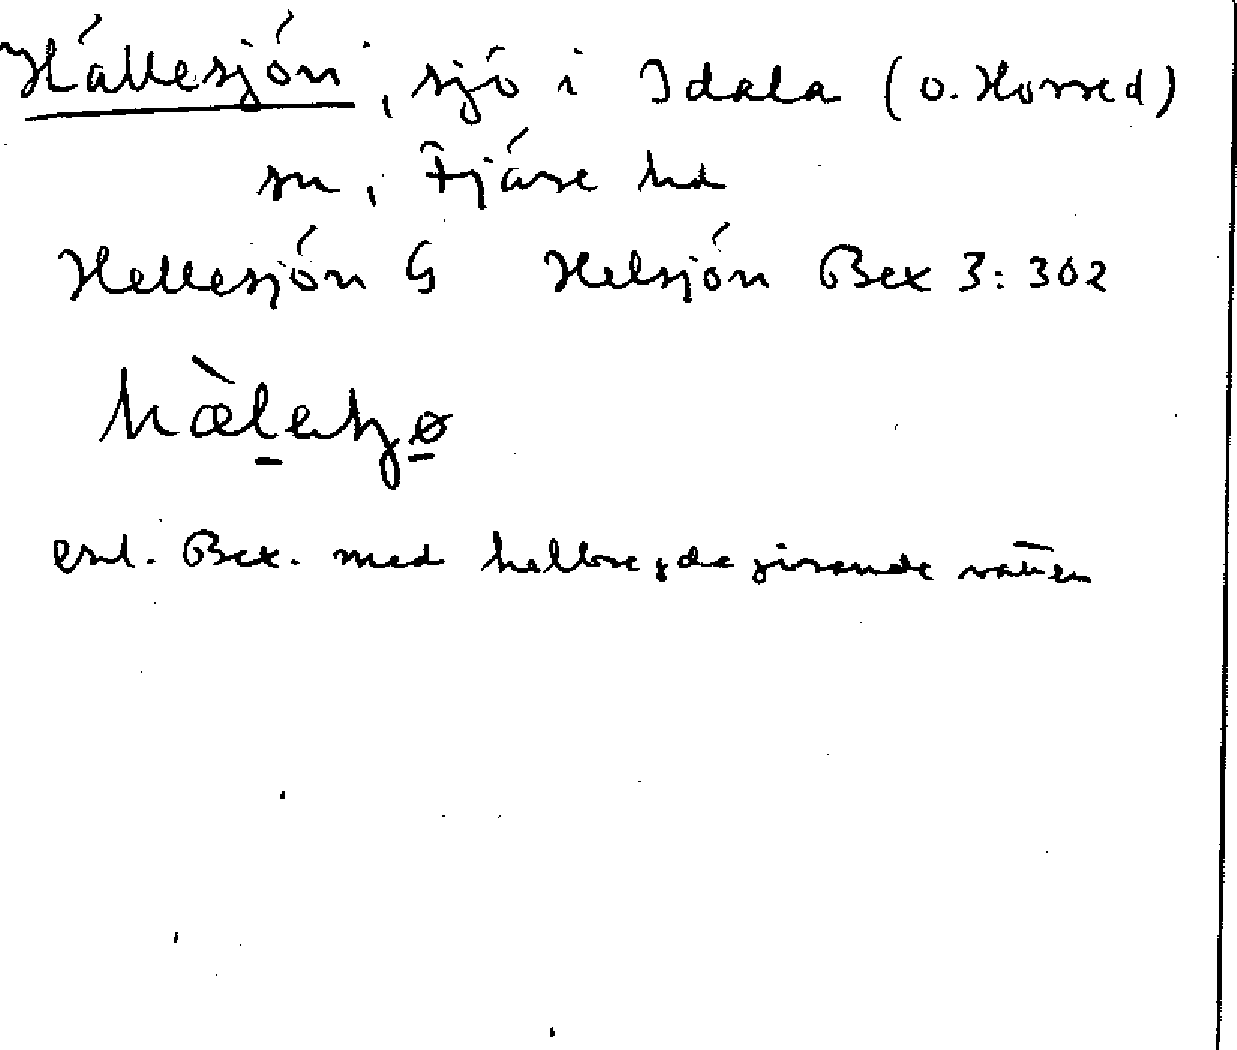 Hällesjön, sjö i Idala (o. Horred)
sn, Fjäre hd
Hellesjön G Helsjön Bex 3: 302
enl. Bex. med helbregdagörande vatten